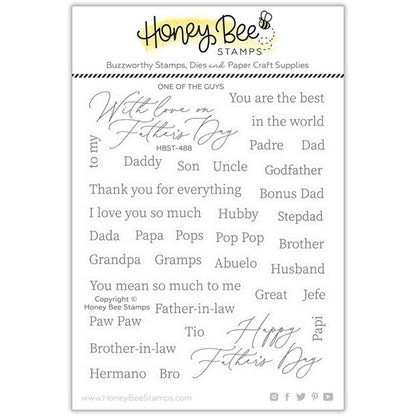 Honey Bee
STAMPS
Buzzworthy Stamps, Dies and Paper Craft Supplies
ONE OF THE GUYS
With love on
Father's Day
HBST-488
to my
You are the best
in the world
Padre Dad
Daddy Son Uncle Godfather
Thank you for everything
Bonus Dad
I love you so much Hubby Stepdad
Dada Papa Pops Pop Pop Brother
Grandpa Gramps Abuelo Husband
You mean so much to me
Great Jefe
Copyright ©
Honey Bee Stamps
Father-in-law
Paw Paw
Tio
Happy
Father's Day
Papi
Brother-in-law
Hermano Bro
www.HoneyBeeStamps.com